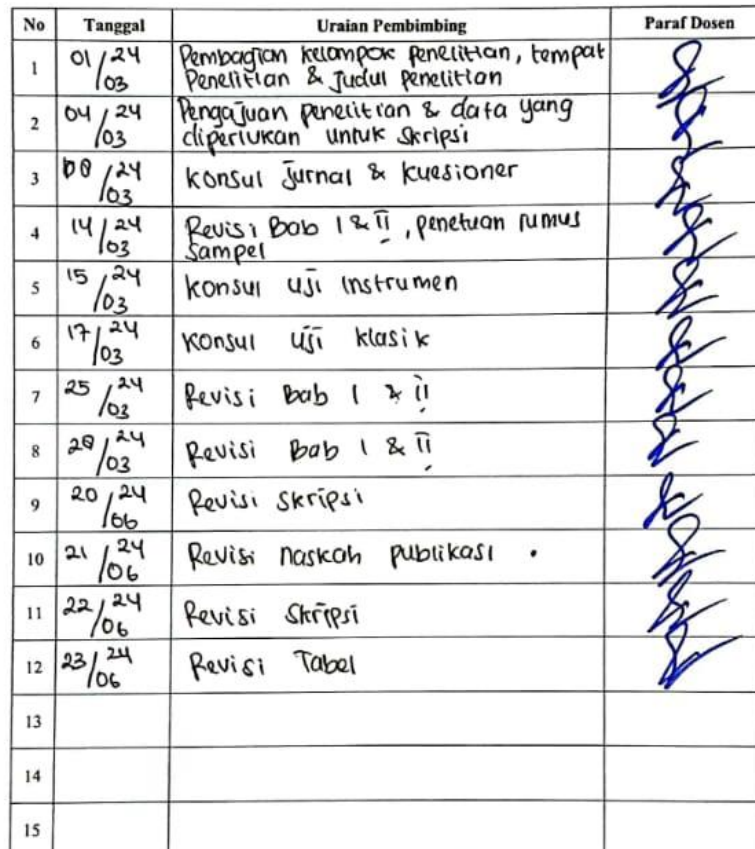 No Tanggal Uraian Pembimbing Paraf Dosen
1 01/24/03 Pembagian kelompok penelitian, tempat
Penelitian & Judul penelitian
2 04/24/03 Pengajuan penelitian & data yang
diperlukan untuk skripsi
3 08/24/03 konsul Jurnal & kuesioner
4 14/24/03 Revisi Bab I & II, penetuan rumus
Sampel
5 15/24/03 konsul uji instrumen
6 17/24/03 Konsul uji klasik
7 25/24/03 Revisi Bab I & II
8 28/24/03 Revisi Bab I & II
9 20/24/06 Revisi skripsi
10 21/24/06 Revisi naskah publikasi
11 22/24/06 Revisi Skripsi
12 23/24/06 Revisi Tabel
13
14
15